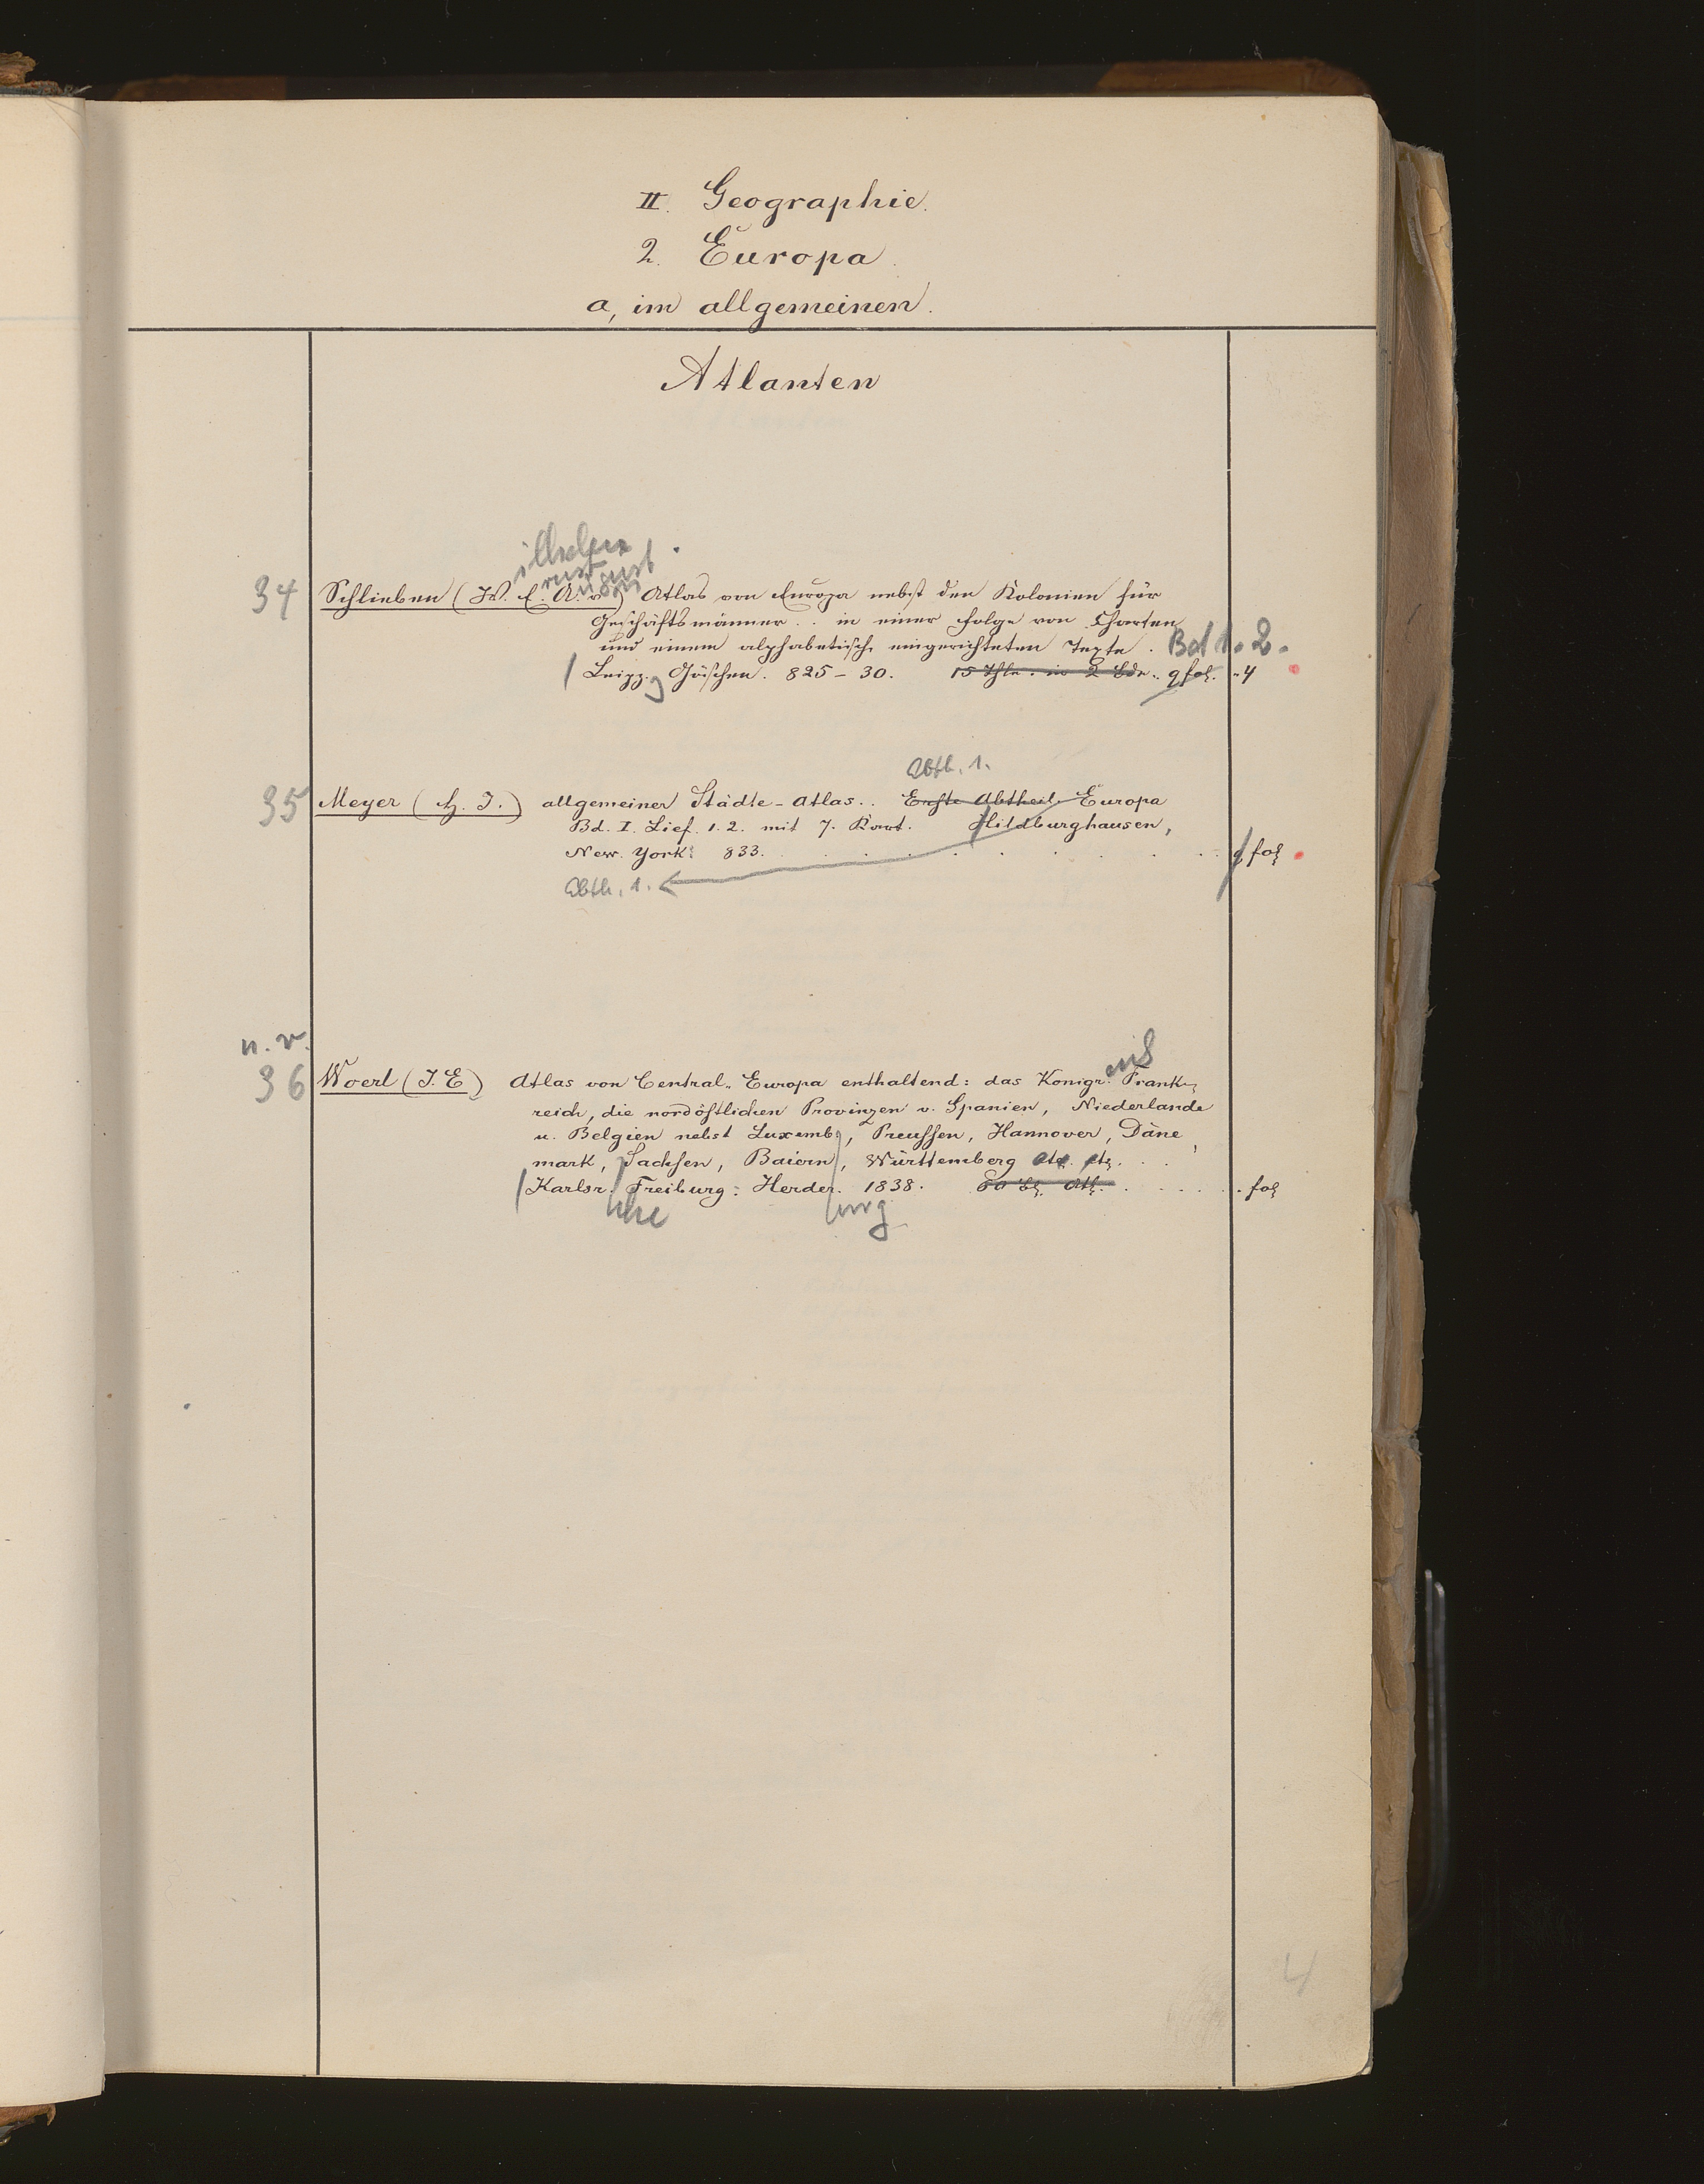 II. Geographie.
2. Europa.
a, im allgemeinen.
Atlanten
ilhelm
rnst
ugust
34 Schlieben (W. E. A. v.) Atlas von Europa nebst den Kolonien für
Geschäftsmänner .. in einer Folge von Charten
und einem alphabetisch eingerichteten Texte. Bd 1. 2.
Leipz. Göschen. 825-30. 15 Thle. in 2 Bde. qfol. 4
Abth. 1.
35 Meyer (H. J.) allgemeiner Städte-Atlas.. Erste Abtheil. Europa
Bd. I. Lief. 1. 2. mit 7. Kart. Hildburghausen,
New. York: 833. q fol
Abth. 1.
n. v.
eichs
36 Woerl (J. E) Atlas von Central-Europa enthaltend: das Konigr. Frank-
reich, die nordöstlichen Provinzen v. Spanien, Niederlande
u. Belgien nebst Luxembg, Preussen, Hannover, Däne
mark, Sachsen, Baiern, Württemberg etc. etc.
Karlsr. Freiburg: Herder. 1838. 60 Bl. fol
uhe
urg
4